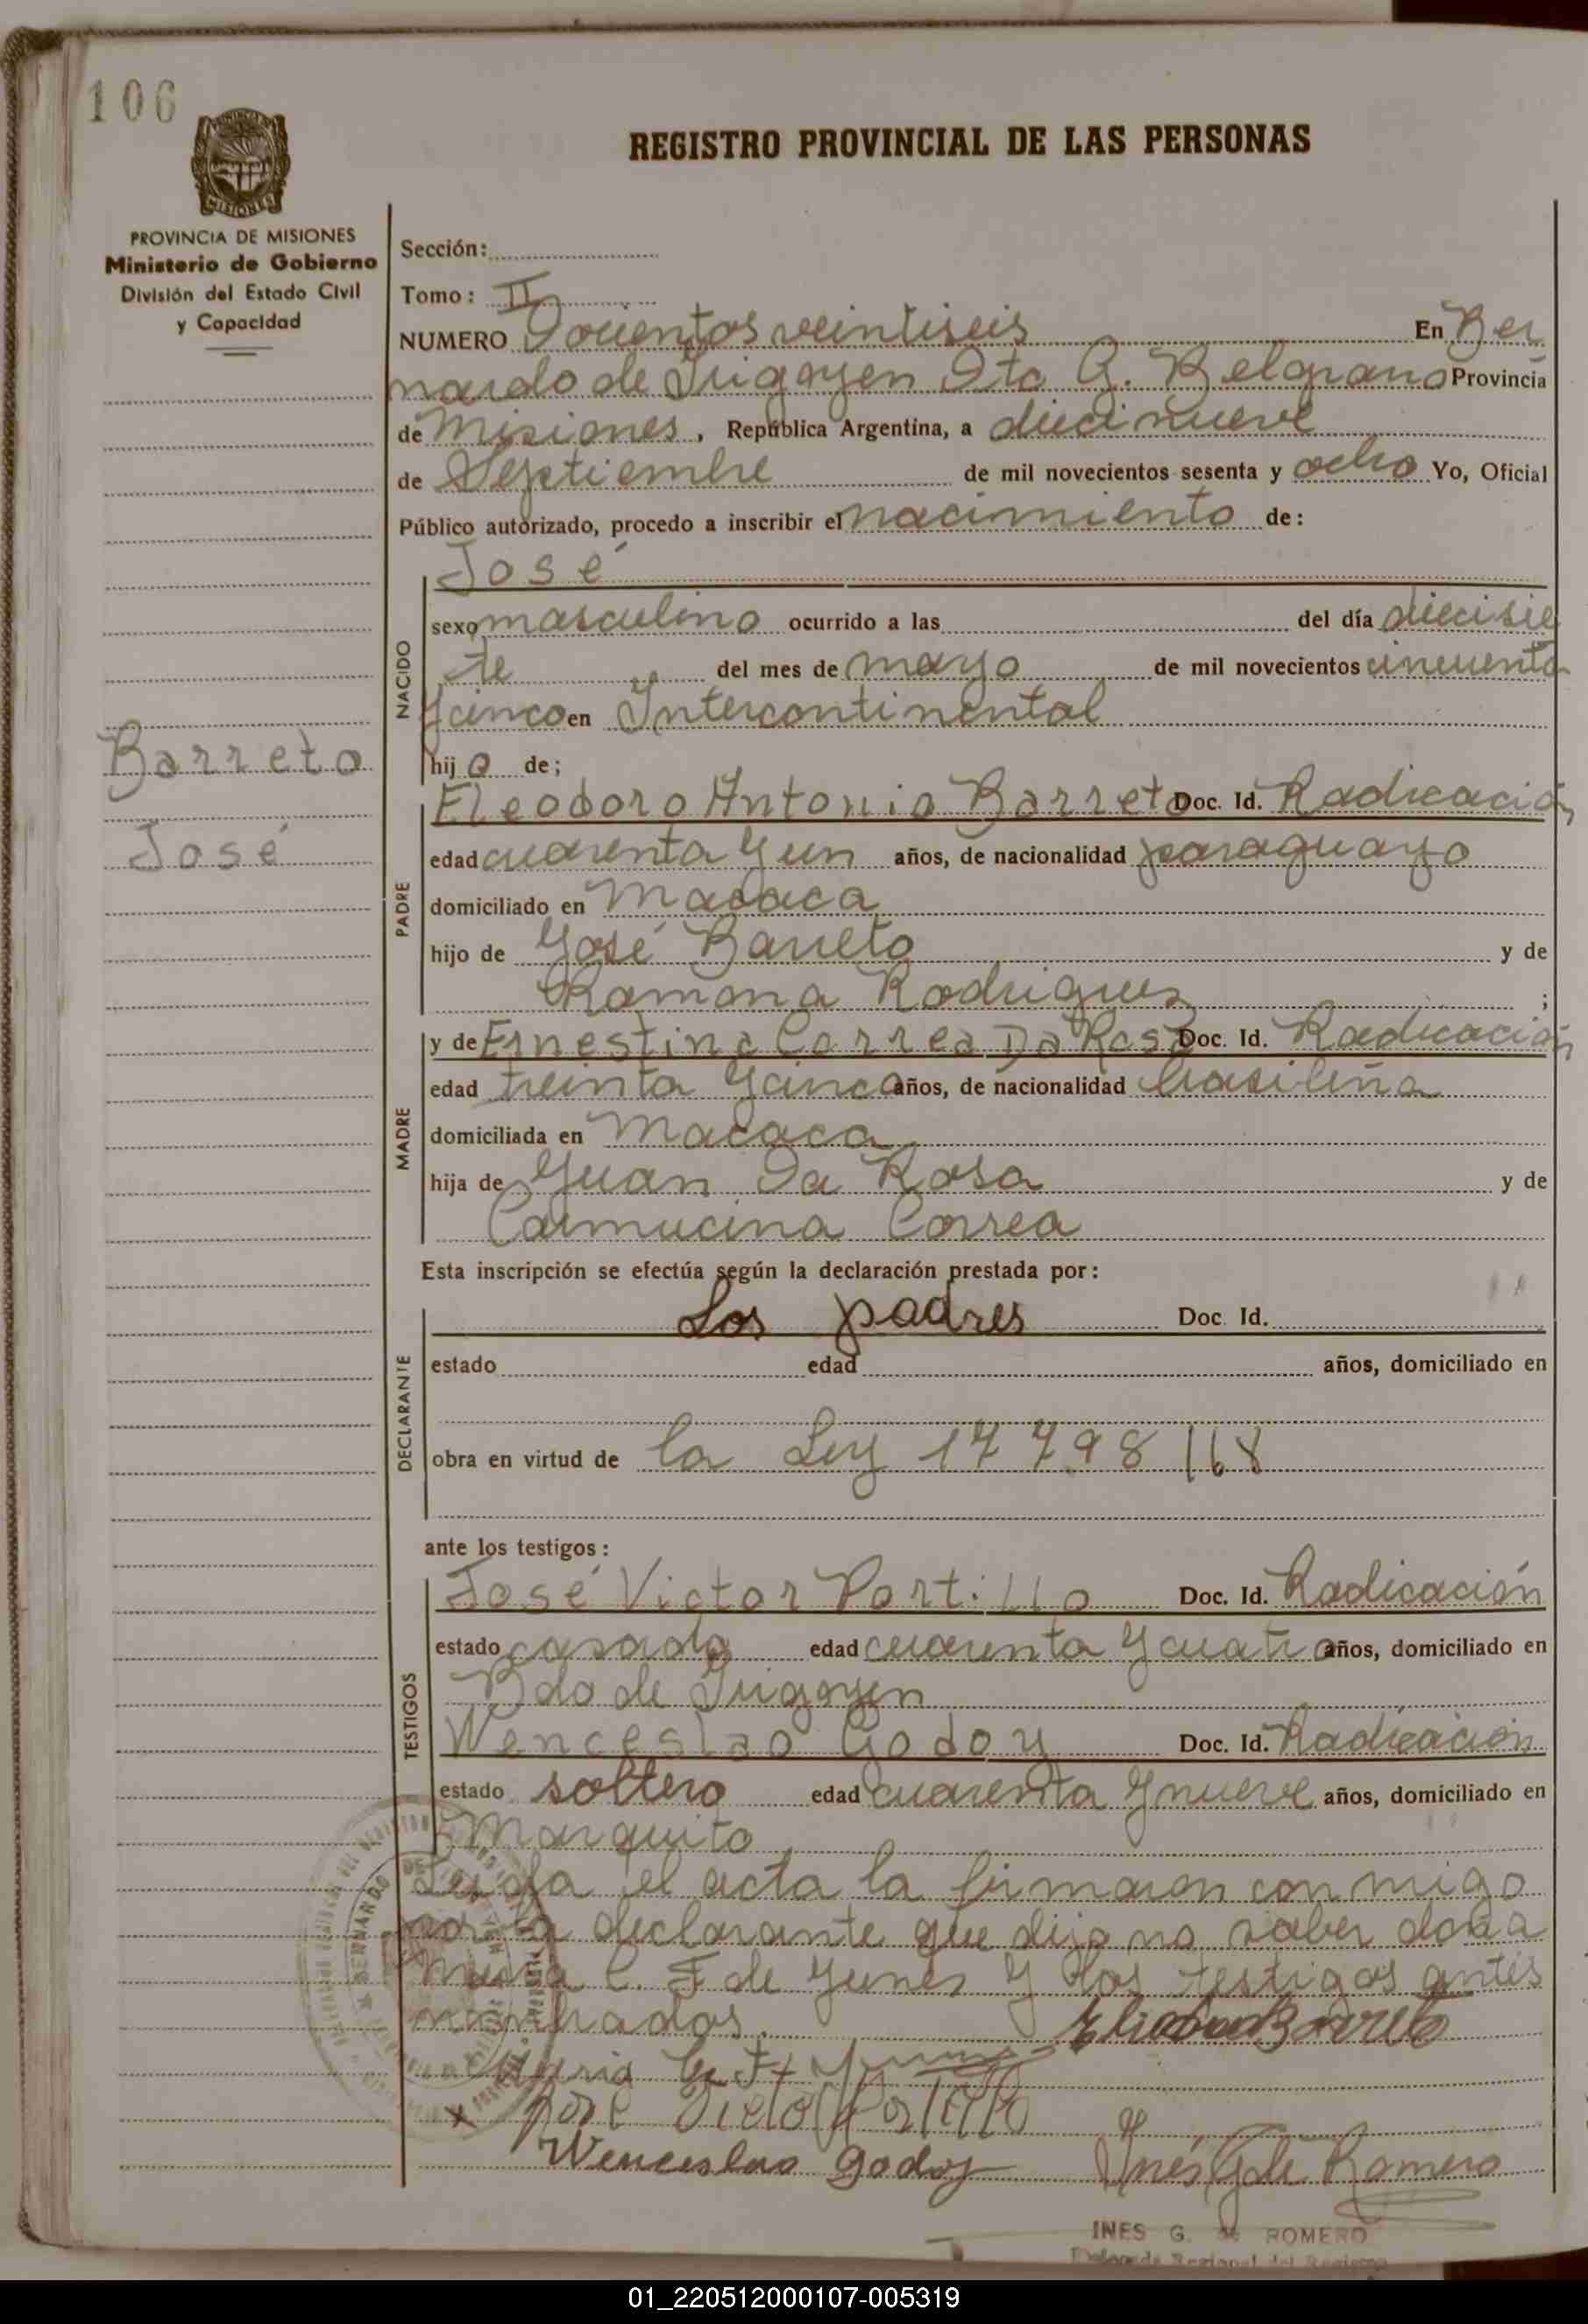 106
REGISTRO PROVINCIAL DE LAS PERSONAS
MISIONES
PROVINCIA DE MISIONES
Ministerio de Gobierno
División del Estado Civil
y Capacidad
Sección:
Tomo: II
NUMERO Docientos veintiseis En Ber
nardo de Irigoyen Dto G. Belgrano Provincia
de Misiones, República Argentina, a diecinueve
de Septiembre de mil novecientos sesenta y ocho Yo, Oficial
Público autorizado, procedo a inscribir el nacimiento de:
José
NACIDO
sexo masculino ocurrido a las del día diecisie
te del mes de mayo de mil novecientos cincuenta
y cinco en Intercontinental
Barreto
José
hij o de;
PADRE
Eleodoro Antonio Barreto Doc. Id. Radicación
edad cuarenta y un años, de nacionalidad paraguayo
domiciliado en Macaca
hijo de José Barreto y de
Ramona Rodriguez ;
MADRE
y de Ernestina Correa Da Rosa Doc. Id. Radicación
edad treinta y cinco años, de nacionalidad brasileña
domiciliada en Macaca
hija de Juan Da Rosa y de
Carmucina Correa
Esta inscripción se efectúa según la declaración prestada por:
DECLARANTE
Los padres Doc. Id.
estado edad años, domiciliado en
obra en virtud de la Ley 17798/68
ante los testigos:
TESTIGOS
José Victor Portillo Doc. Id. Radicación
estado casado edad cuarenta y cuatro años, domiciliado en
Bdo de Irigoyen
Wenceslao Godoy Doc. Id. Radicación
estado soltero edad cuarenta y nueve años, domiciliado en
Marquito
Leida el acta la firmaron conmigo
por la declarante que dijo no saber doña
Maria C. F de Yunes y los testigos antes
nombrados.
Barreto
Maria C. F
José Victor Portillo
Wenceslao Godoy Inés G de Romero
INES G. de ROMERO
Delegada Regional del Registro
BERNARDO DE
01_220512000107-005319